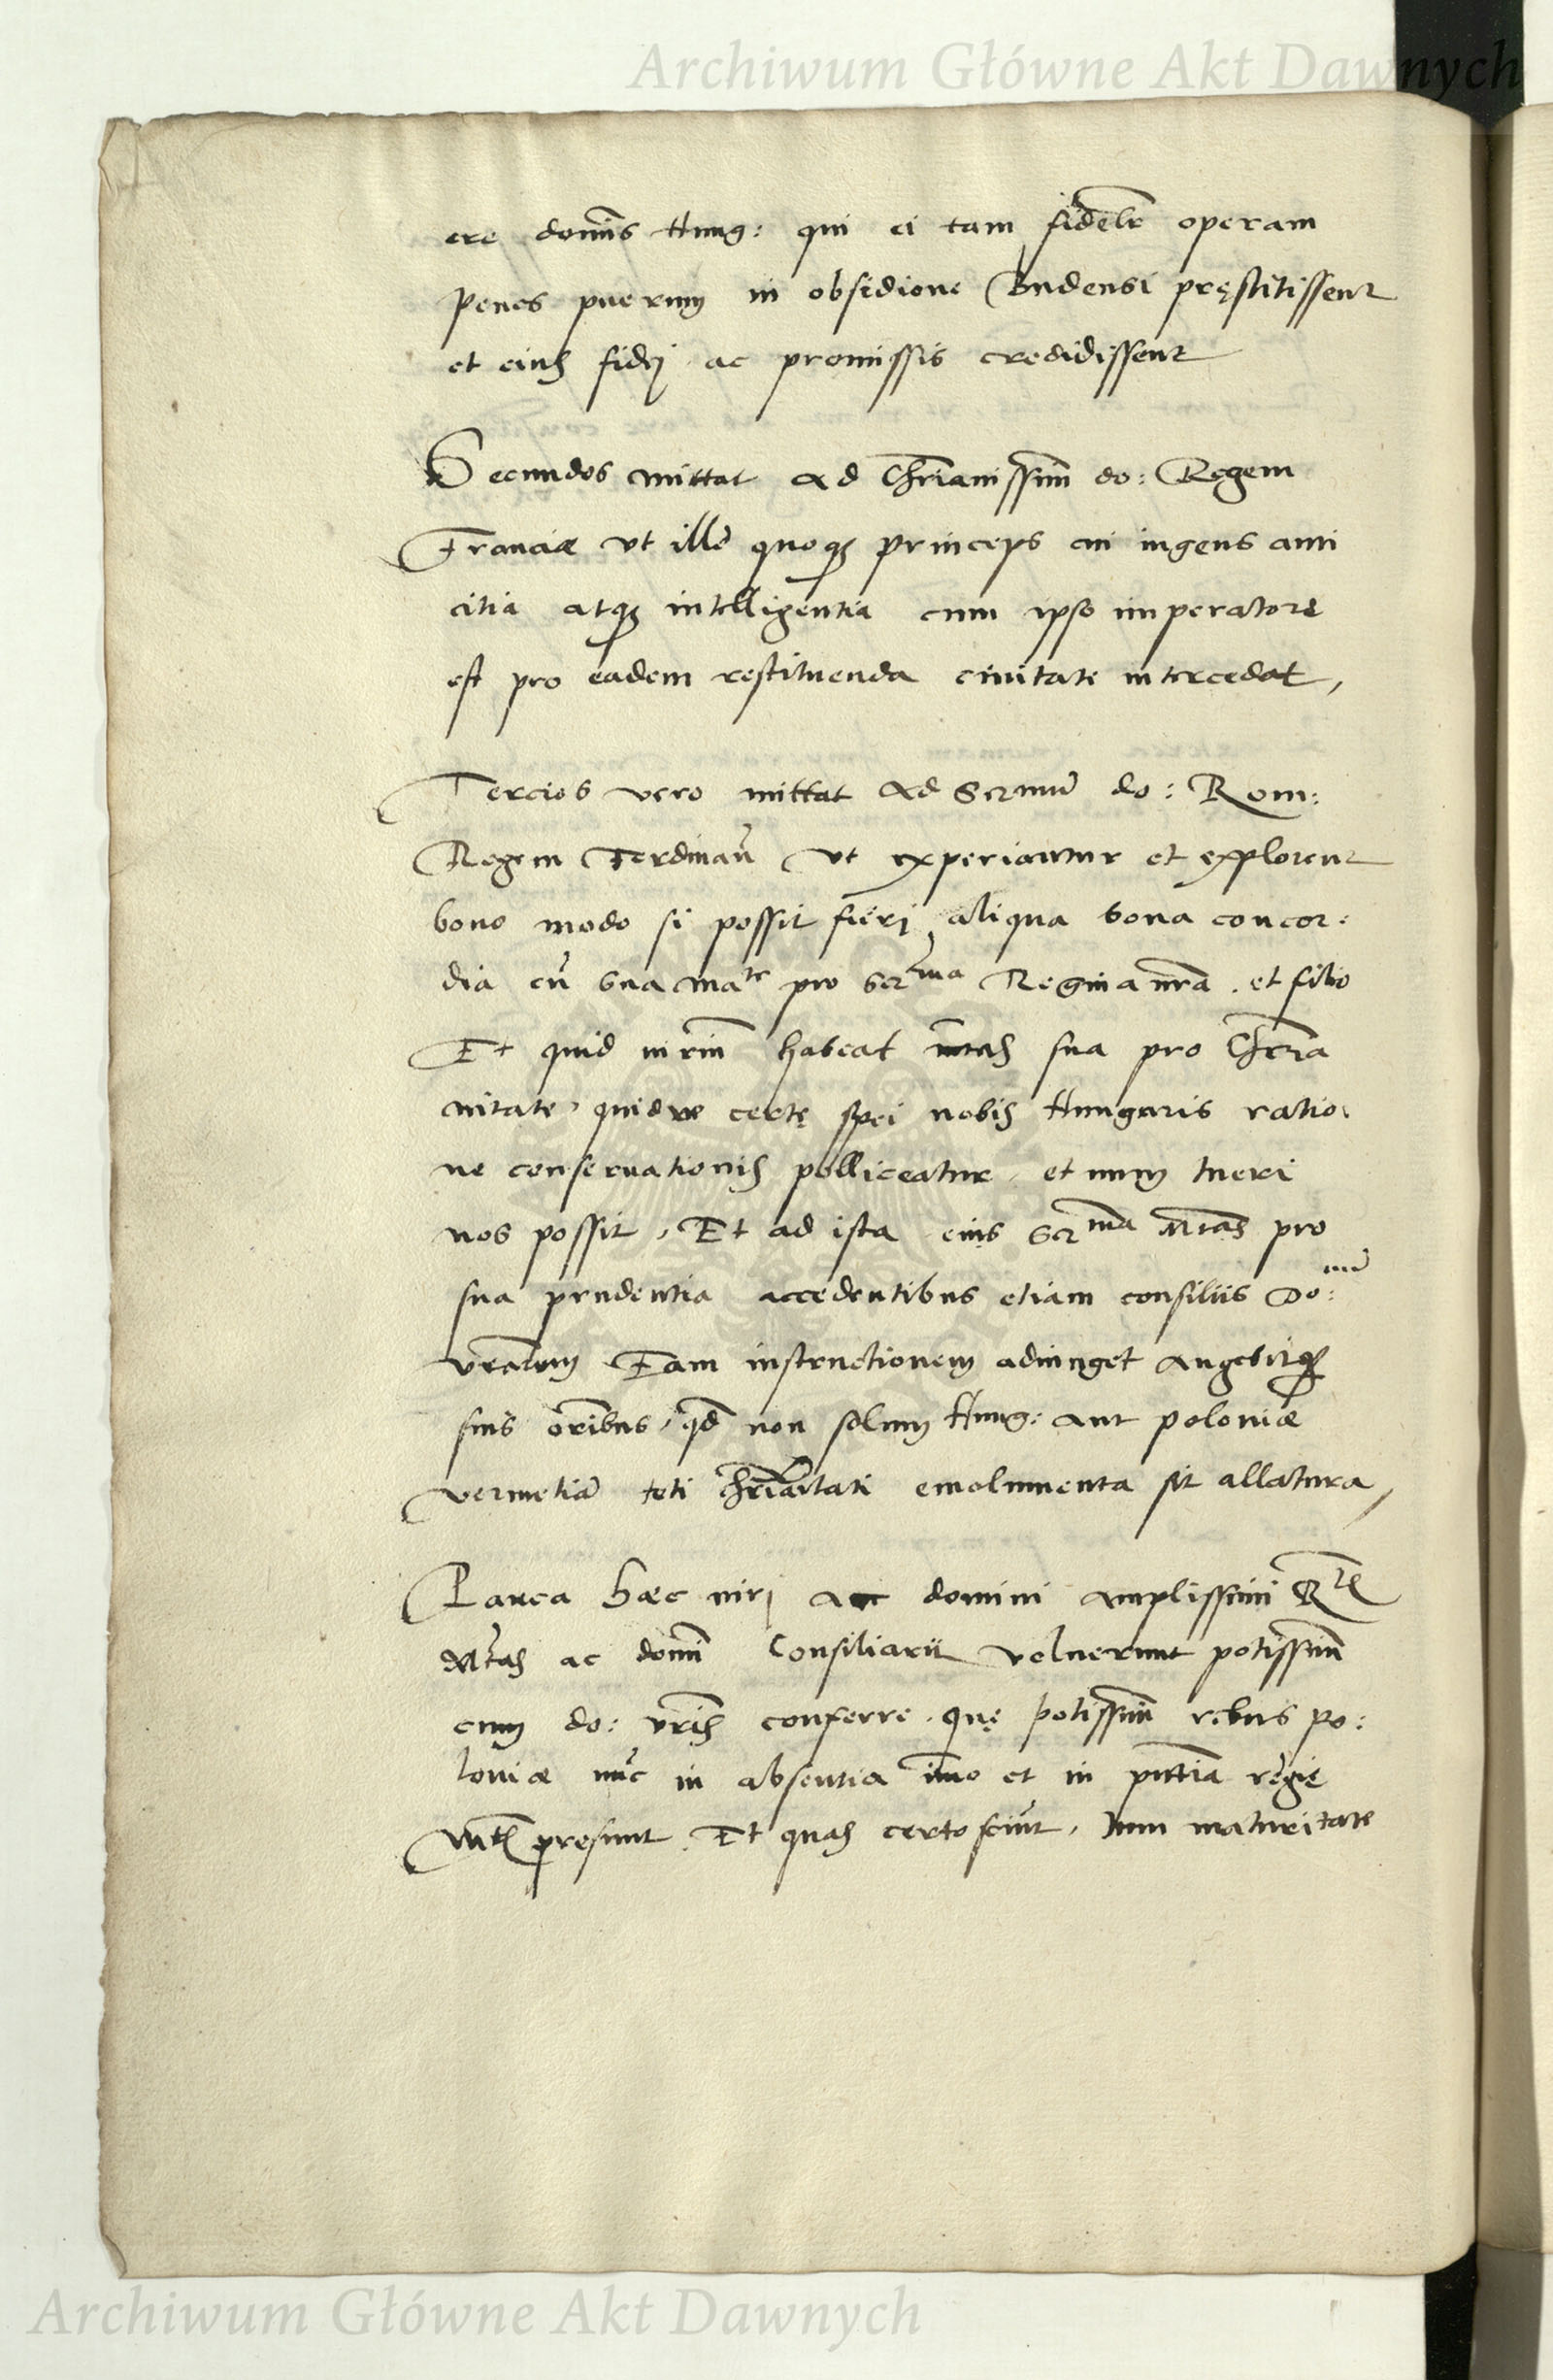 Archiwum Główne Akt Dawnych
ere dominis Hung: qui ei tam fidele operam
penes puerum in obsidione Budensi pręstitissent
et eius fidej ac promissis credidissent
Secundos mittat ad Chrianissimū do: Regem
Franciæ vt ille quoqꝫ princeps cui ingens ami
citia atqꝫ intelligentia cum ipso imperatore
est pro eadem restituenda ciuitate intercedat,
Tercios vero mittat ad Sermū do: Rom:
Regem Ferdinan̄ vt experiantur et explorent
bono modo si possit fieri aliqua bona concor:
dia cū sua mate pro serma Regina nr̄a. et filio
Et quid virium habeat mtas sua pro Chr̄ia
nitate, quidve certę spei nobis Hungaris ratio:
ne conseruationis polliceatur, et num tueri
nos possit, Et ad ista eius serma Mtas pro
sua prudentia accedentibus etiam consiliis Do:num
vrarum Eam instructionem adiunget augebitqꝫ
suis oribus, qd non solum Hung: aut poloniæ
verumetiā toti chrianitati emolumenta sit allatura,
Pauca hæc virj ac domini amplissimi Rie
Mtas ac domi Consiliarii voluerunt potissimū
cum do: vris conferre. quę potissimū rebus po:
loniæ nūc in absentia immo et in pn̄tia regię
Mtis presunt. Et quas certo sciūt, tum maturitate
Archiwum Główne Akt Dawnych